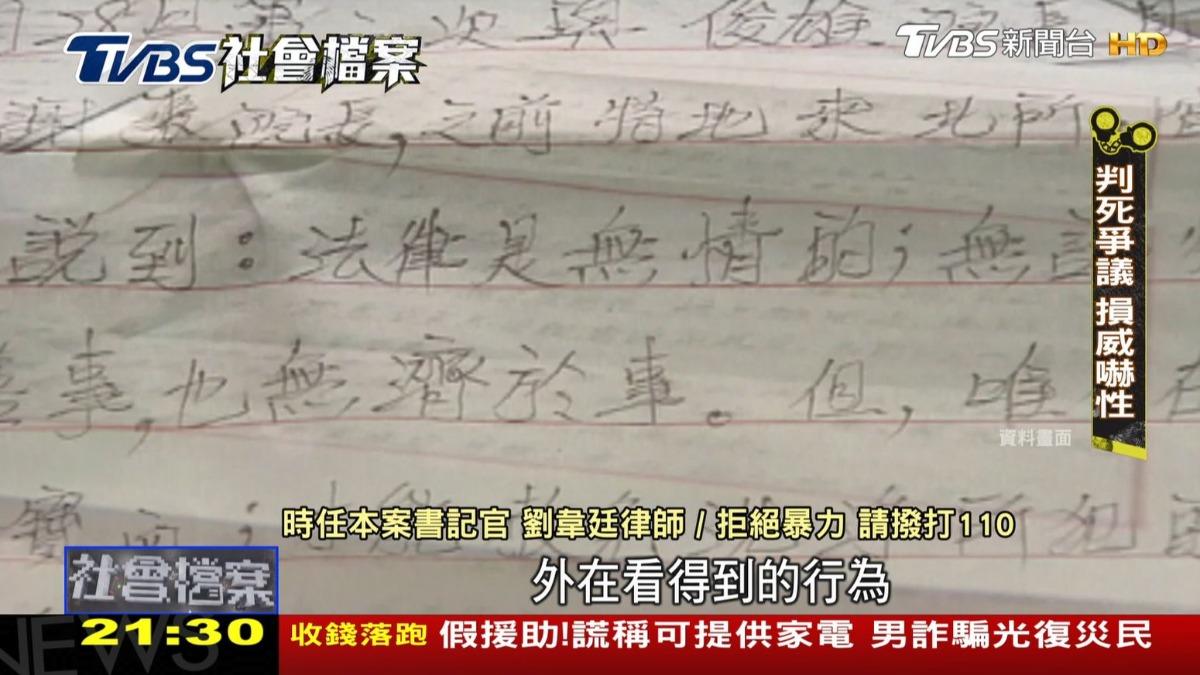 TVBS 社會檔案
TVBS 新聞台 HD
次與 俊雄
謝 之前 地來北所
說到：法律是無情的；無
事，也無濟於事。但，唯
所犯
判死爭議 損威嚇性
資料畫面
時任本案書記官 劉韋廷律師 / 拒絕暴力 請撥打110
外在看得到的行為
社會檔案
21:30
收錢落跑 假援助!謊稱可提供家電 男詐騙光復災民
NEWS